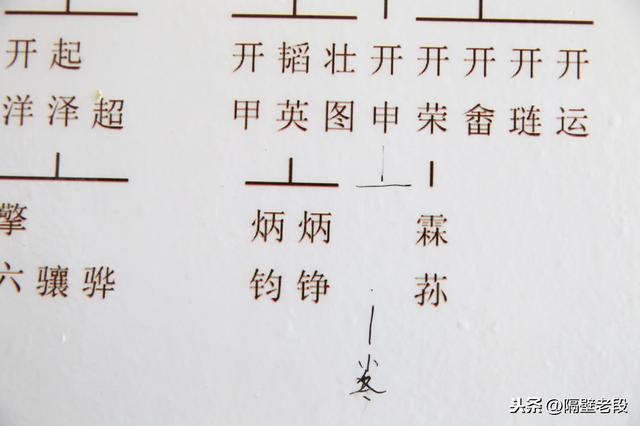 开 起 开 韬 壮 开 开 开 开 开
洋 泽 超 甲 英 图 申 荣 畬 琏 运
擎 炳 炳 霖
骧 骅 钧 铮 荪
头条 @隔壁老段